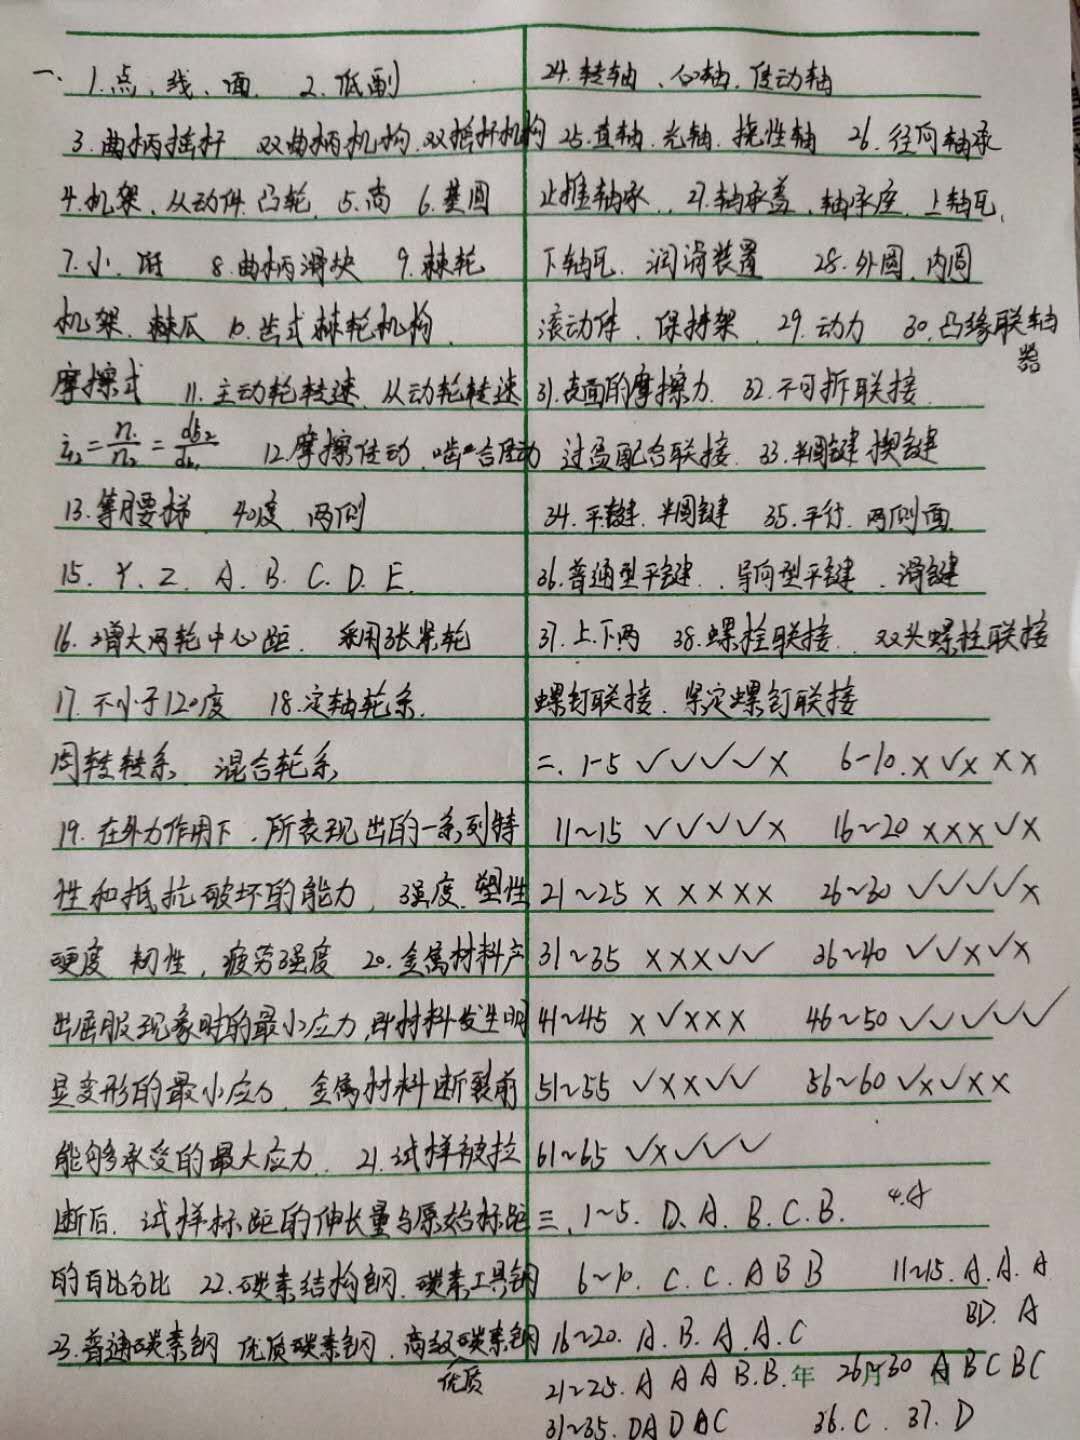 一、1.点、线、面. 2.低副
3.曲柄摇杆 双曲柄机构.双摇杆机构
4.机架、从动件.凸轮. 5.尚 6.基圆
7.小. 8.曲柄滑块 9.棘轮
机架.棘爪 10.齿式棘轮机构.
摩擦式 11.主动轮转速.从动轮转速
i₁₂=n₁/n₂=db₂/db₁ 12.摩擦传动.啮合传动
13.等腰梯 40度 两侧
15.Y.Z.A.B.C.D.E.
16.增大两轮中心距. 采用张紧轮
17.不小于120度 18.定轴轮系.
周转转系. 混合轮系
19.在外力作用下.所表现出的一系列特
性和抵抗破坏的能力,强度.塑性
硬度 韧性,疲劳强度 20.金属材料产
出屈服现象时的最小应力,即材料发生明
显变形的最小应力.金属材料断裂前
能够承受的最大应力. 21.试样被拉
断后.试样标距的伸长量与原始标距
的百比分比 22.碳素结构钢.碳素工具钢
23.普通碳素钢 优质碳素钢.高级碳素钢
优质
24.转轴、心轴.传动轴
25.直轴.光轴.挠性轴 26.径向轴承
止推轴承. 27.轴承盖.轴承座.上轴瓦.
下轴瓦.润滑装置 28.外圆.内圆
滚动体.保持架. 29.动力 30.凸缘联轴
器
31.表面的摩擦力. 32.不可拆联接.
过盈配合联接. 33.半圆键.楔键
34.平键.半圆键 35.平行.两侧面.
36.普通型平键.导向型平键.滑键
37.上.下两 38.螺栓联接.双头螺柱联接
螺钉联接.紧定螺钉联接
二、1-5 ✓✓✓✓× 6-10.×✓×××
11~15 ✓✓✓✓× 16~20 ×××✓×
21~25 ××××× 26~30 ✓✓✓✓×
31~35 ×××✓✓ 36~40 ✓✓×✓×
41~45 ×✓××× 46~50 ✓✓✓✓✓
51~55 ✓××✓✓ 56~60 ✓×✓××
61~65 ✓×✓✓✓
4.A
三、1~5. D.A.B.C.B.
6~10. C.C.A B B 11~15.A.A.A
BD.A
16~20. A.B.A.A.C
21~25. A A A B.B. 年 26月30日 A B C B C
31~35. D A D A C 36.C. 37.D